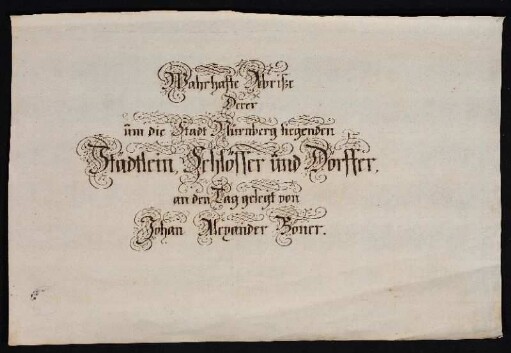 Wahrhafte Abriße
Derer
üm die Stadt Nürnberg ligenden
Städtlein, Schlösser und Dörffer,
an den Tag gelegt von
Johan Alexander Böner.